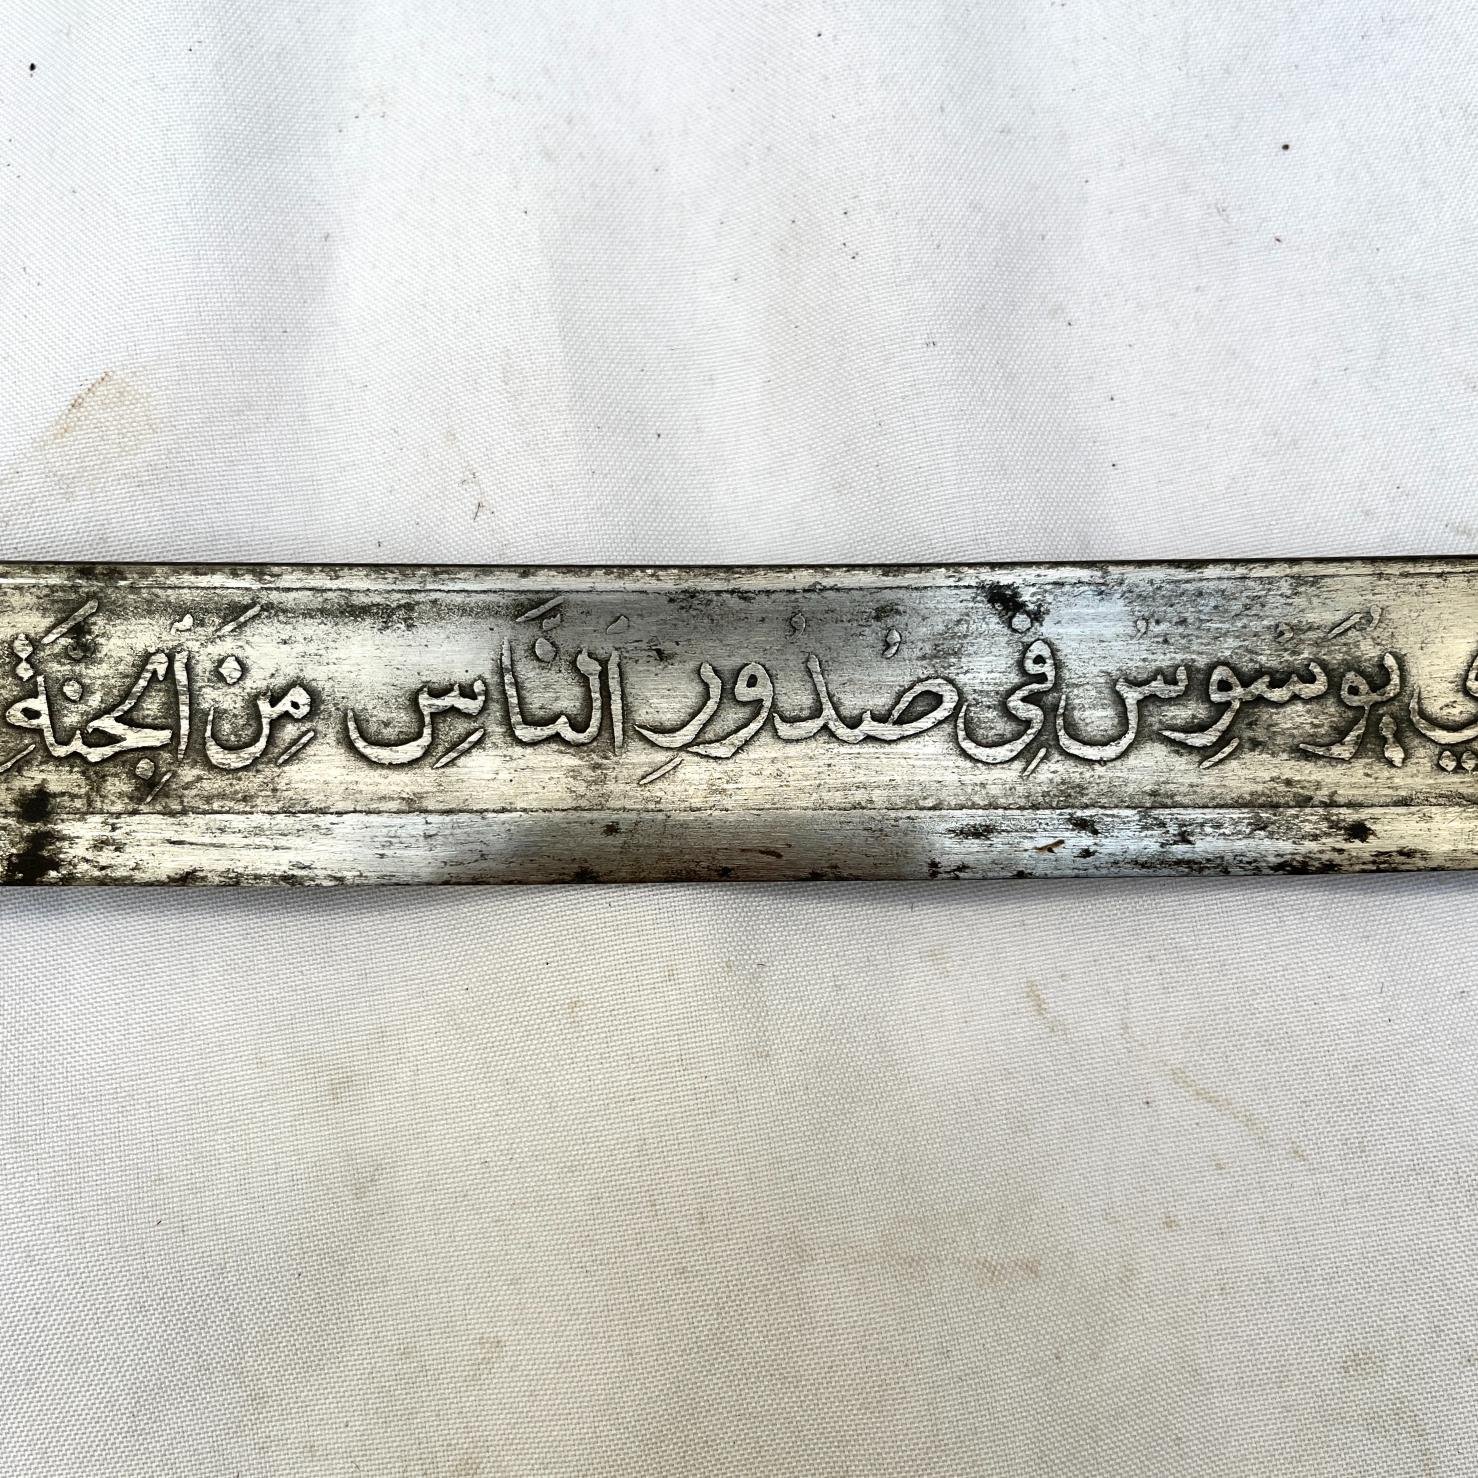 ي يُوَسْوِسُ فِي صُدُورِ اَلنَّاسِ مِنَ اَلْجِنَةِ